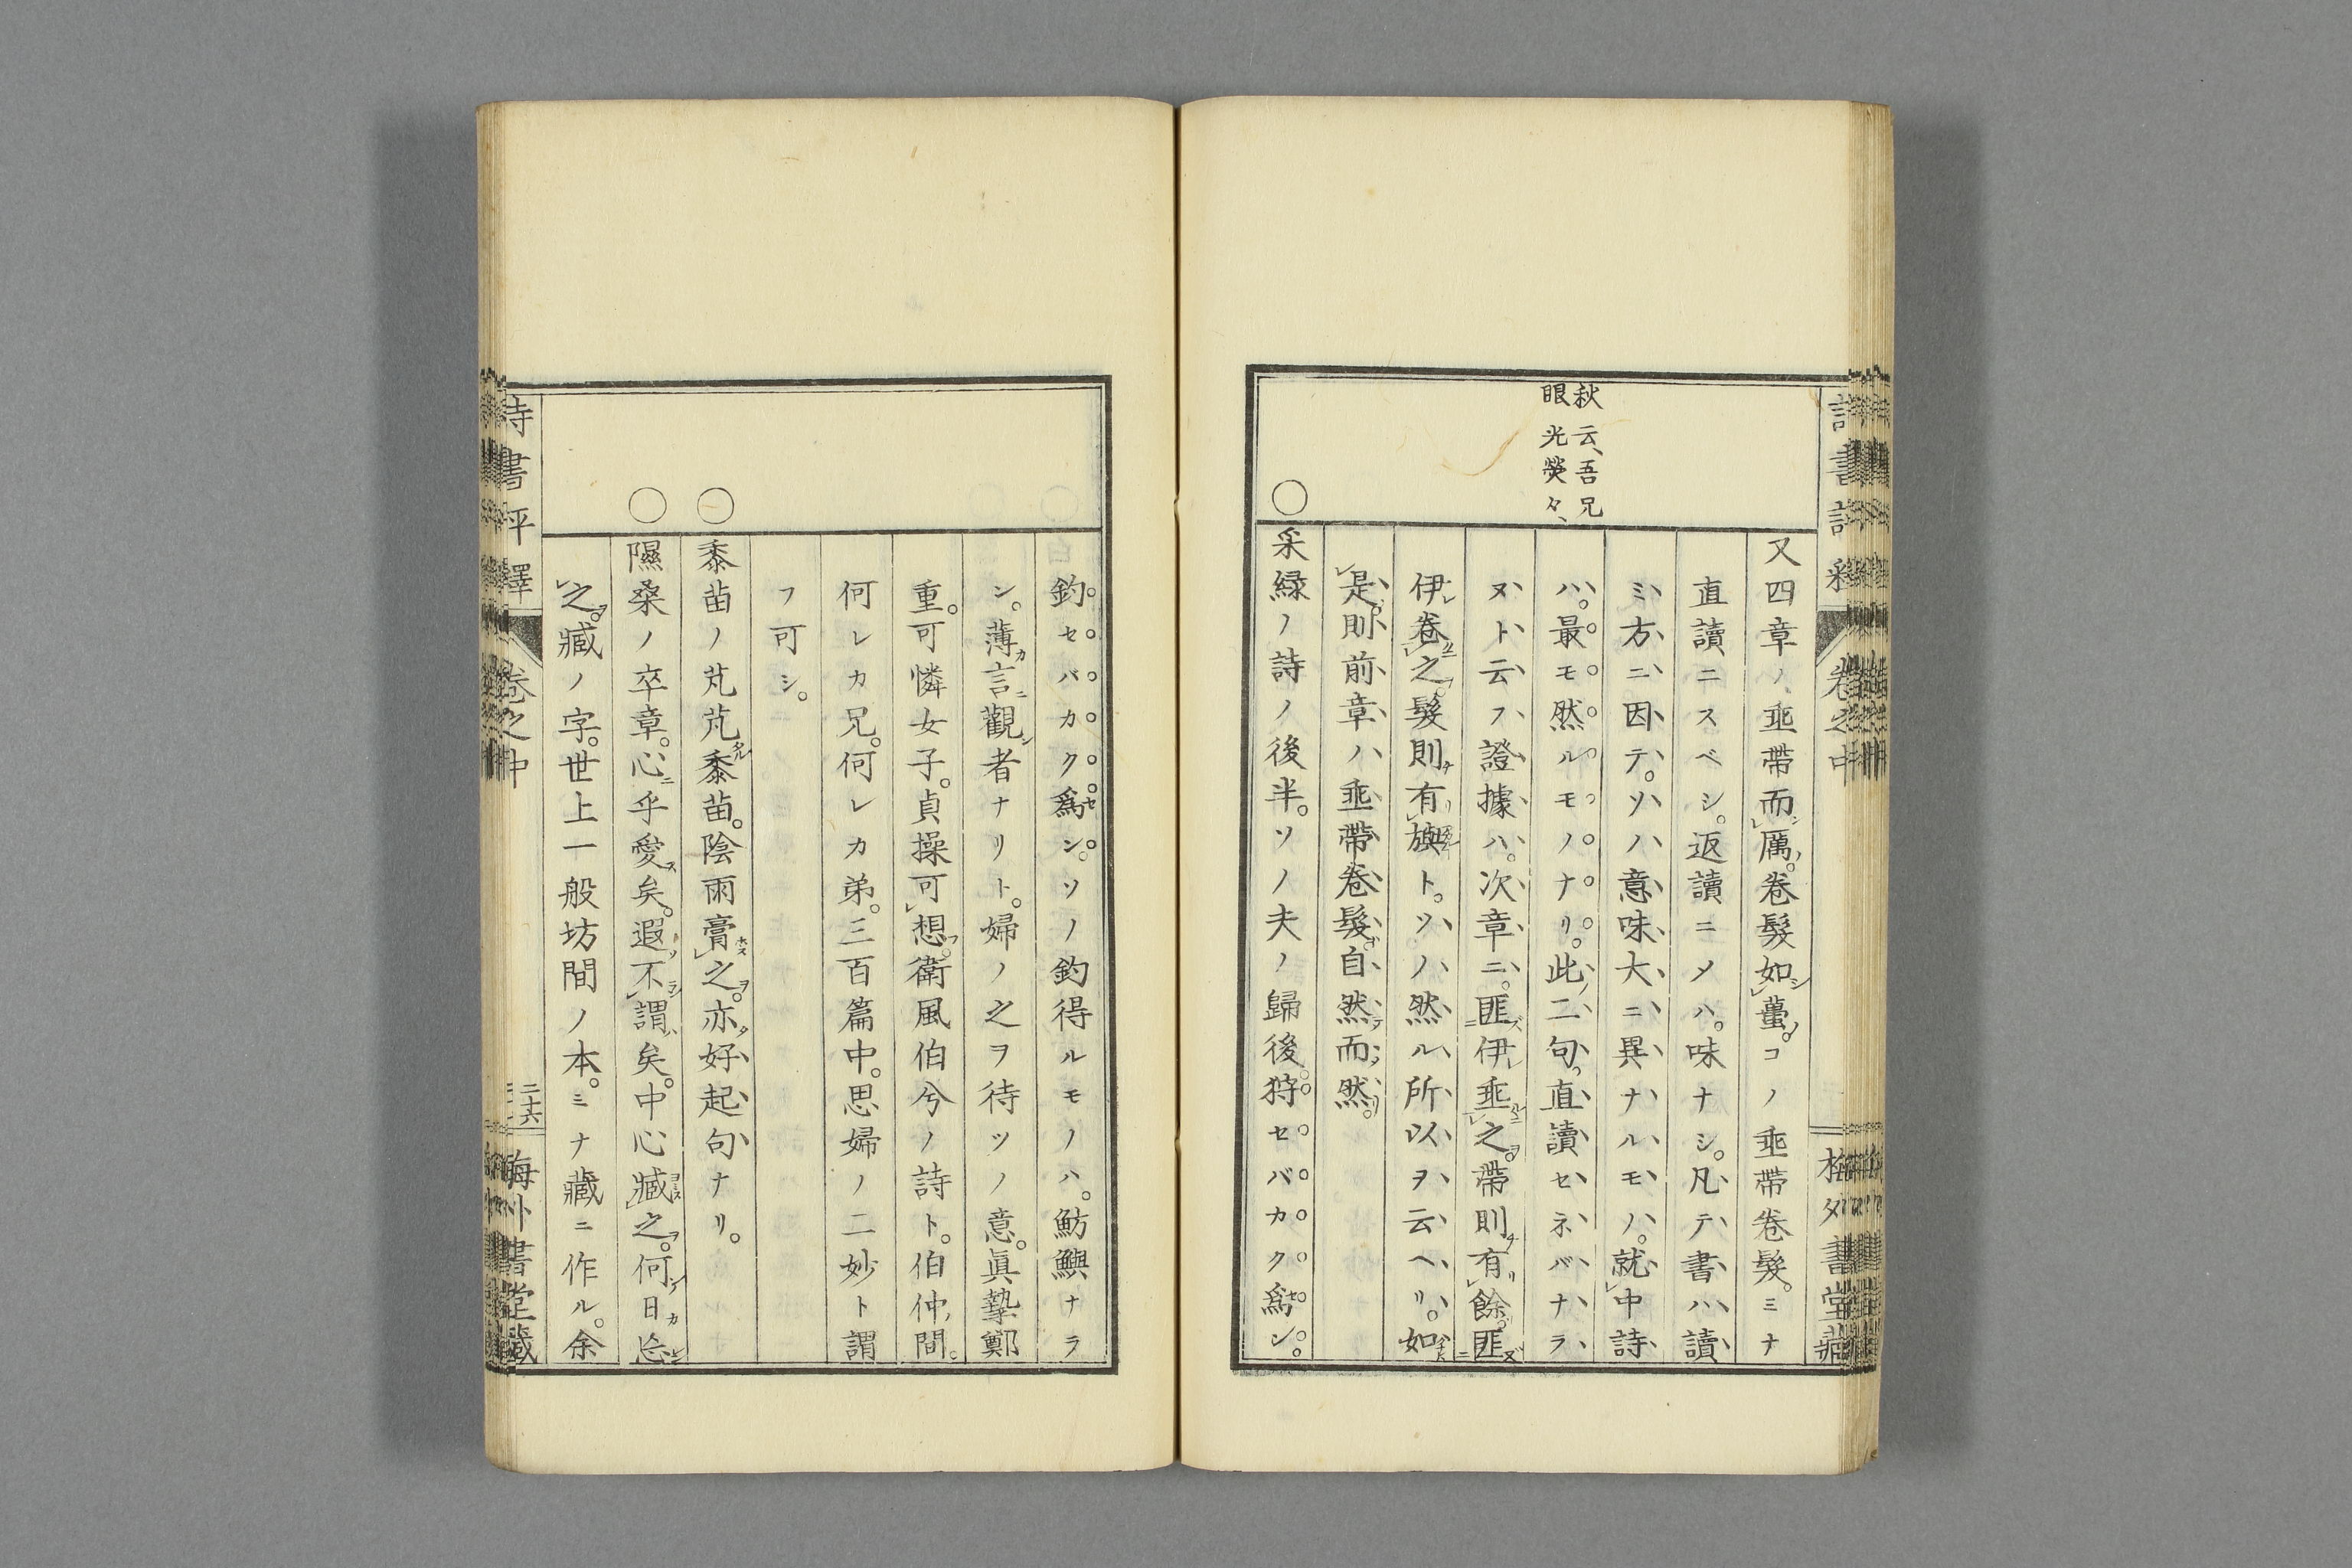 秋云、吾兄
眼光熒々、
又四章ノ、垂帶而厲。卷髮如蠆。コノ垂帶卷髮。ミナ
直讀ニスベシ。返讀ニメハ。味ナシ。凡テ書ハ讀
ミ方ニ因テ。ソノ意味大ニ異ナルモノ。就中詩
ハ。最モ然ルモノナリ。此二句直讀セネバナラ
ヌト云フ證據ハ。次章ニ。匪伊垂之。帶則有餘。匪
伊卷之。髮則有旟ト。ソノ然ル所以ヲ云ヘリ。如
是。則前章ハ垂帶卷髮。自然而然。
○采緑ノ詩ノ後半。ソノ夫ノ歸後。狩セバカク爲ン。
釣セバカク爲ン。ソノ釣得ルモノハ。魴鱮ナラ
ン。薄言觀者ナリト。婦ノ之ヲ待ツノ意。眞摯鄭
重。可憐女子。貞操可想。衛風伯兮ノ詩ト。伯仲間。
何レカ兄。何レカ弟。三百篇中。思婦ノ二妙ト謂
フ可シ。
○黍苗ノ芃芃黍苗。陰雨膏之。亦好起句ナリ。
○隰桑ノ卒章。心乎愛矣。遐不謂矣。中心臧之。何日忘
之。臧ノ字。世上一般坊間ノ本。ミナ藏ニ作ル。余
詩書評釋
卷之中
二十六